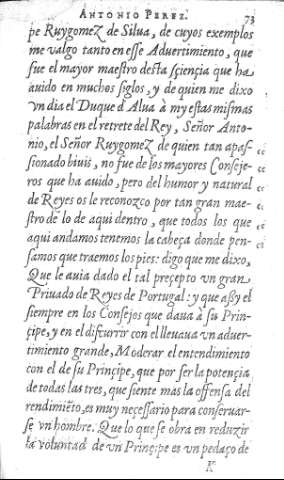 ANTONIO PEREZ. 73
pe RuygomeZ de Silua, de cuyos exemplos
me valgo tanto en esse Aduertimiento, que
fue el mayor maestro desta sçiençia que ha
auido en muchos siglos, y de quien me dixo
vn dia el Duque d'Alua à my estas mismas
palabras en el retrete del Rey, Señor Anto-
nio, el Señor RuygomeZ de quien tan apas-
sionado biuis, no fue de los mayores Conseje-
ros que ha auido, pero del humor y natural
de Reyes os le reconozco por tan gran mae-
stro de lo de aqui dentro, que todos los que
aqui andamos tenemos la cabeça donde pen-
samos que traemos los pies: digo que me dixo,
Que le auia dado el tal preçepto vn gran
Priuado de Reyes de Portugal: y que assy el
siempre en los Consejos que daua à su Prin-
çipe, y en el discurrir con el lleuaua vn aduer-
timiento grande, Moderar el entendimiento
con el de su Prinçipe, que por ser la potençia
de todas las tres, que siente mas la offensa del
rendimiẽto, es muy necessario para conseruar-
se vn hombre. Que lo que se obra en reduzir
la voluntad de vn Prinçipe es vn pedaço de
K